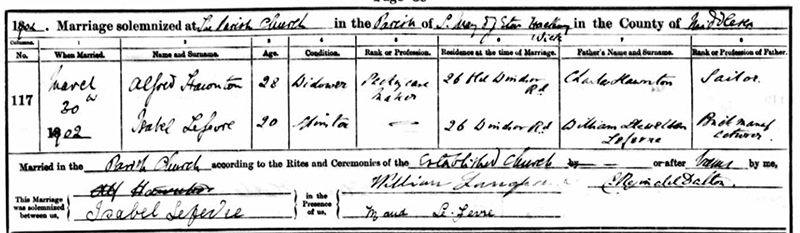 1902. Marriage solemnized at The Parish Church in the Parish of St Mary of Eton Hackney Wick in the County of Middlesex
Columns. 1 2 3 4 5 6 7 8
No. When Married. Name and Surname. Age. Condition. Rank or Profession. Residence at the time of Marriage. Father's Name and Surname. Rank or Profession of Father.
117 March 30th 1902 Alfred Hawnton 28 Widower maker 26 Old Windsor Rd Charles Hawnton Sailor
Isabel Lefevre 20 Spinster — 26 Windsor Rd William Lefevre Brick manufacturer
Married in the Parish Church according to the Rites and Ceremonies of the Established Church by — or after Banns by me,
This Marriage was solemnized between us, Alf Hawnton in the Presence of us, William C. Reginald Dalton
Isabel Lefevre Maud Le Fevre